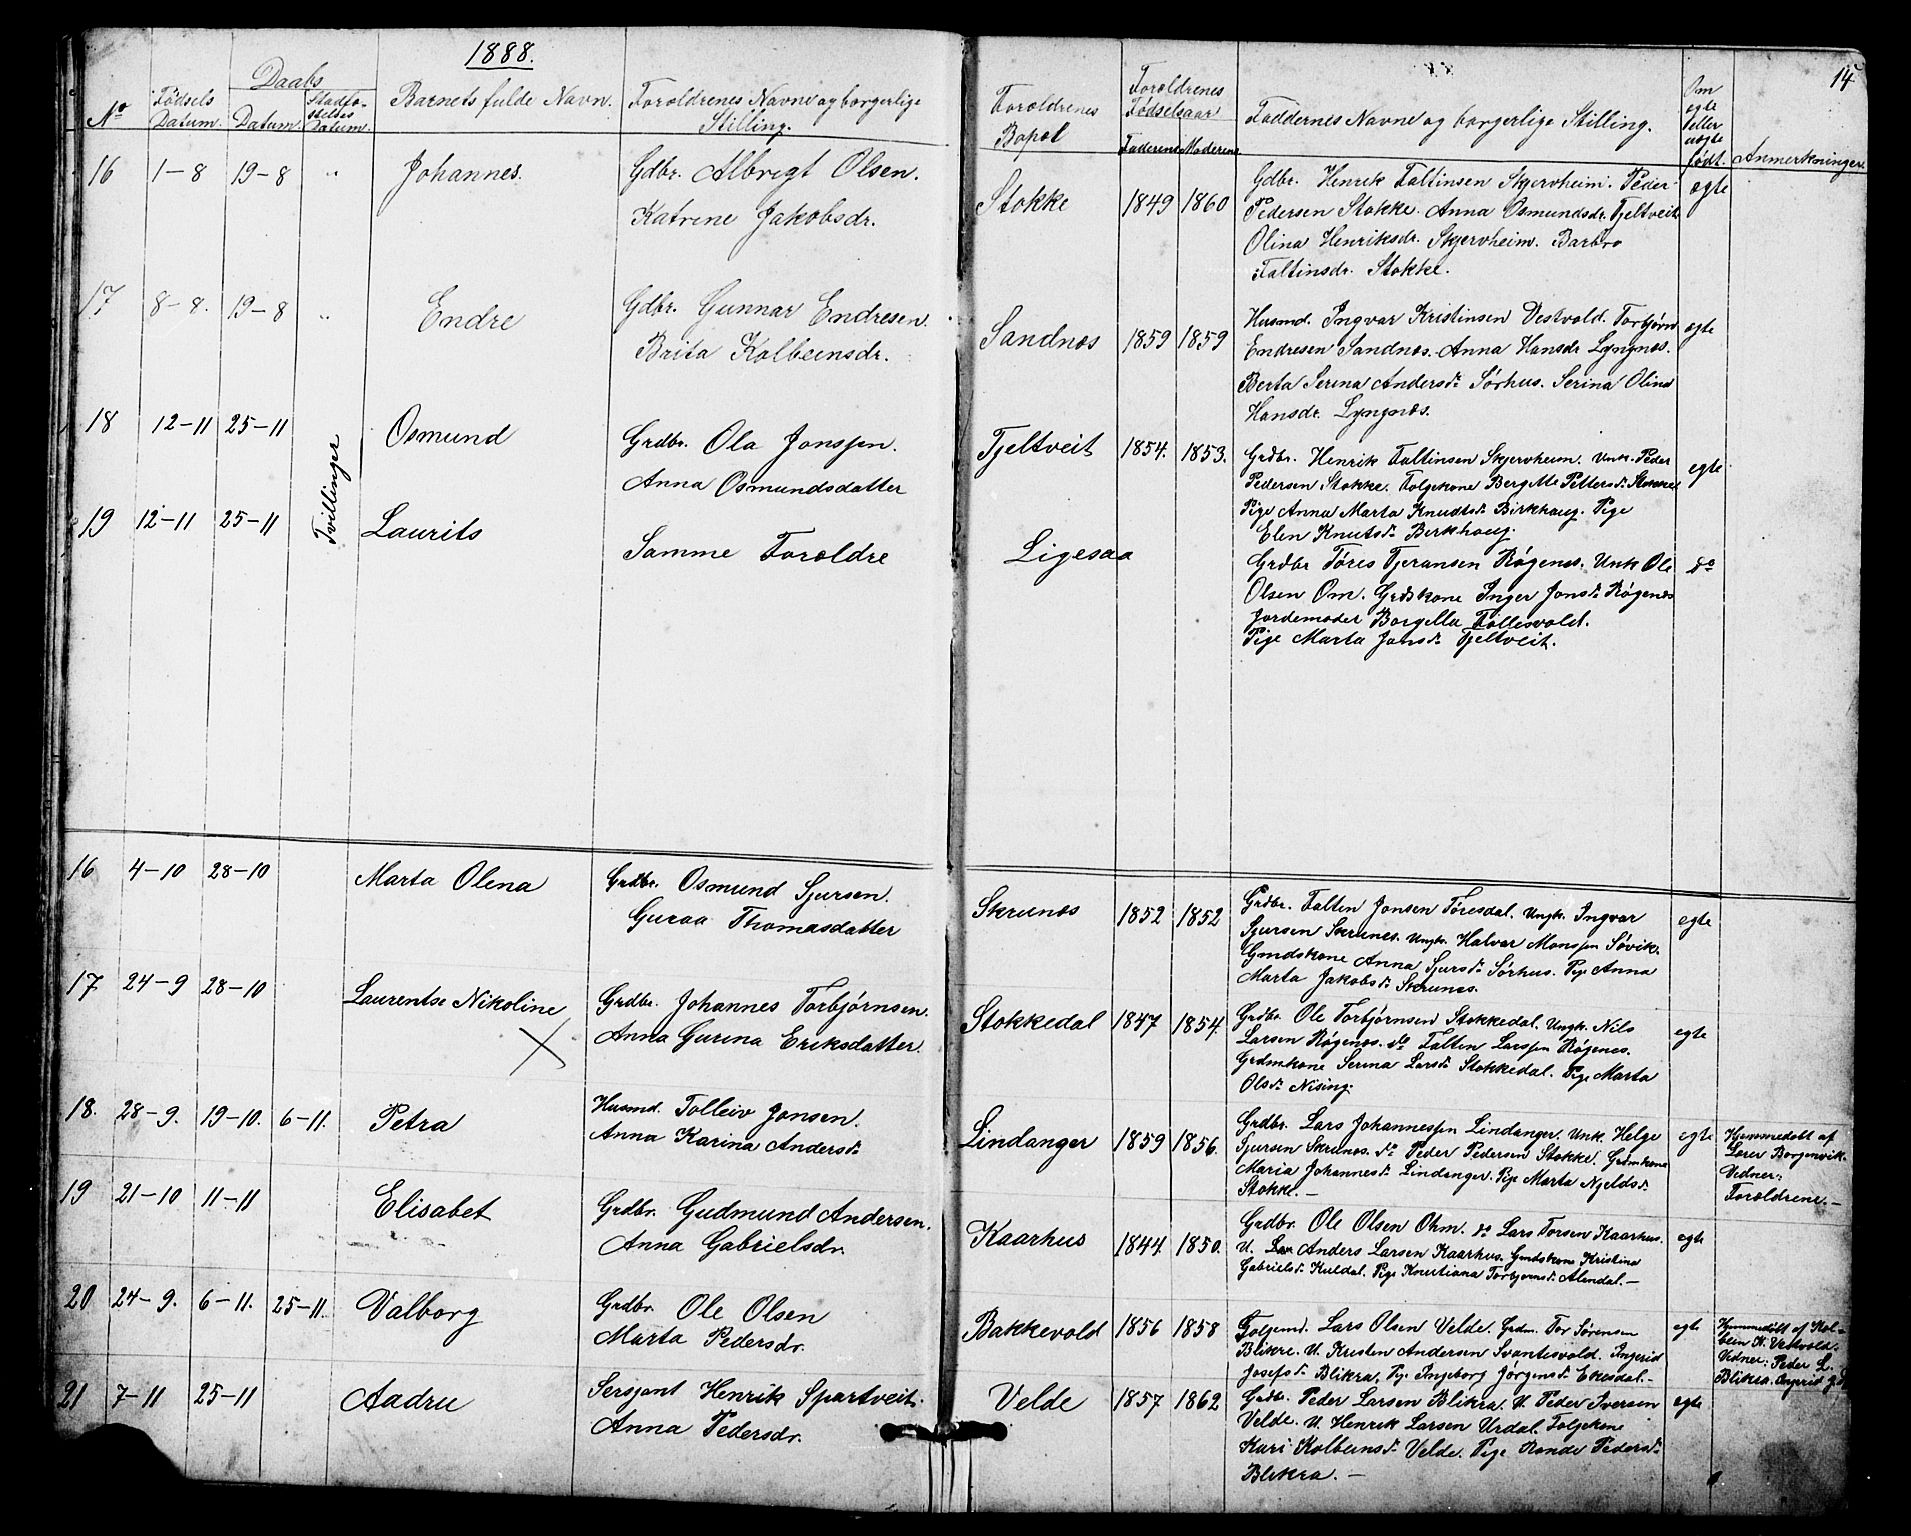 1888.
14
No
Fødsels Datum.
Daabs
Datum.
Stadfæstelses Datum.
Barnets fulde Navn.
Forældrenes Navne og borgerlige Stilling.
Forældrenes Bopæl
Forældrenes Fødselsaar
Faderens
Moderens
Faddernes Navne og borgerlige Stilling.
Om egte eller uægte født.
Anmerkninger.
16 1-8 19-8 " Johannes. Gdbr. Albregt Olsen.
Katrine Jakobsdr.
Stokke 1849 1860
Gdbr. Henrik Faltinsen Skjervheim. Peder
Pedersen Stokke. Anna Osmundsdr. Tjeltveit
Olina Henriksdr. Skjervheim. Barbro
Faltinsdr. Stokke.
ægte
17 8-8. 19-8 " Endre Gdbr. Gunnar Endresen.
Brita Kolbeinsdr.
Sandnæs 1859 1859
Husmd. Ingvar Kristinsen Vestvold. Torbjørn
Endresen Sandnæs. Anna Hansdr Lyngnæs.
Berta Serina Andersdr Sørhus. Serina Olina
Hansdr. Lyngnæs.
ægte
18 12-11 25-11 Tvillinger Osmund Grdbr. Ola Jonssen.
Anna Osmundsdatter
Tjeltveit 1854. 1853.
Grdbr. Henrik Faltinsen Skjervheim. Unk. Peder
Pedersen Stokke. Folgekone Bergitte Pettersdr Stokke
Pige Anna Marta Knudtsdr Birkhaug. Pige
Elen Knutsdr Berkhaug.
egte
19 12-11 25-11 Laurits Samme Forældre
Ligesaa
Grdbr Tøres Tjeransen Røgenes. Unk Ole
Olsen Om. Grdskone Inger Jonsdr Røgenes
Jordemoder Borgella Føllesvoldt.
Pige Marta Jonsdr Tjeltveit.
do
16 4-10 28-10 Marta Olena Grdbr. Osmund Sjursen.
Guraa Thomasdatter
Skrunæs 1852 1852
Grdbr. Falten Jonsen Tøresdal. Ungk. Ingvar
Sjursen Skrunes. Ungk. Halvar Monssen Søvik.
Gmdskone Anna Sjursdr Sørhus. Pige Anna
Marta Jakobsdr Skrunes.
egte
17 24-9 28-10 Laurentse Nikoline Grdbr. Johannes Torbjørnsen.
Anna Gurina Eriksdatter.
Stokkedal 1847 1854.
Grdbr. Ole Torbjørnsen Stokkedal. Ungk. Nils
Larsen Røgenæs. do Falten Larssen Røgenes.
Grdmkone Serina Larsdr Stokkedal. Pige Marta
Olsdr Nising.
egte
18. 28-9. 19-10. 6-11. Petra Husmd. Tolleiv Jonsen.
Anna Karina Andersdr
Lindanger 1859 1856.
Grdbr. Lars Johannessen Lindanger. Unk. Helge
Sjursen Skrunæs. do Peder Pedersen Stokke. Grdmkone
Maria Johannesdr Lindanger. Pige Marta Njeldsdr
Stokke. —
egte
Hjemmedøbt af
Lærer Borgenvik.
Vidner:
Forældrene. —
19 21-10 11-11 Elisabet Grdbr. Gudmund Andersen.
Anna Gabrielsdr.
Kaarhus 1844. 1850.
Grdbr. Ole Olsen Ohm. do Lars Torsen Kaarhus.
U. Anders Larsen Kaarhus. Gmdskone Kristina
Gabrielsdr Kuldal. Pige Knutiana Torbjørnsdr Alendal. —
egte
20 24-9. 6-11. 25-11. Valborg Grdbr. Ole Olsen
Marta Pedersdr.
Bakkevold 1856 1858
Folgemd. Lars Olsen Velde. Grdm. Tor Sørensen
Blikre. U. Kristen Andersen Svantesvold. Ingerid
Josefsdr Blikra. Pige Ingeborg Jørgensdr Ekesdal. —
egte
Hjemmedøbt af Kol-
bein K. Vestvold.
Vidner: Peder L.
Blikra. Ingerid J.
21 7-11 25-11 Aadru Sersjant Henrik Spartveit.
Anna Pedersdr.
Velde 1857 1862
Grdbr. Peder Larsen Blikra. U. Peder Iversen
Velde. U. Henrik Larsen Urdal. Folgekone
Kari Kolbeinsdr Velde. Pige Ronde Pedersdr
Blikra. —
egte